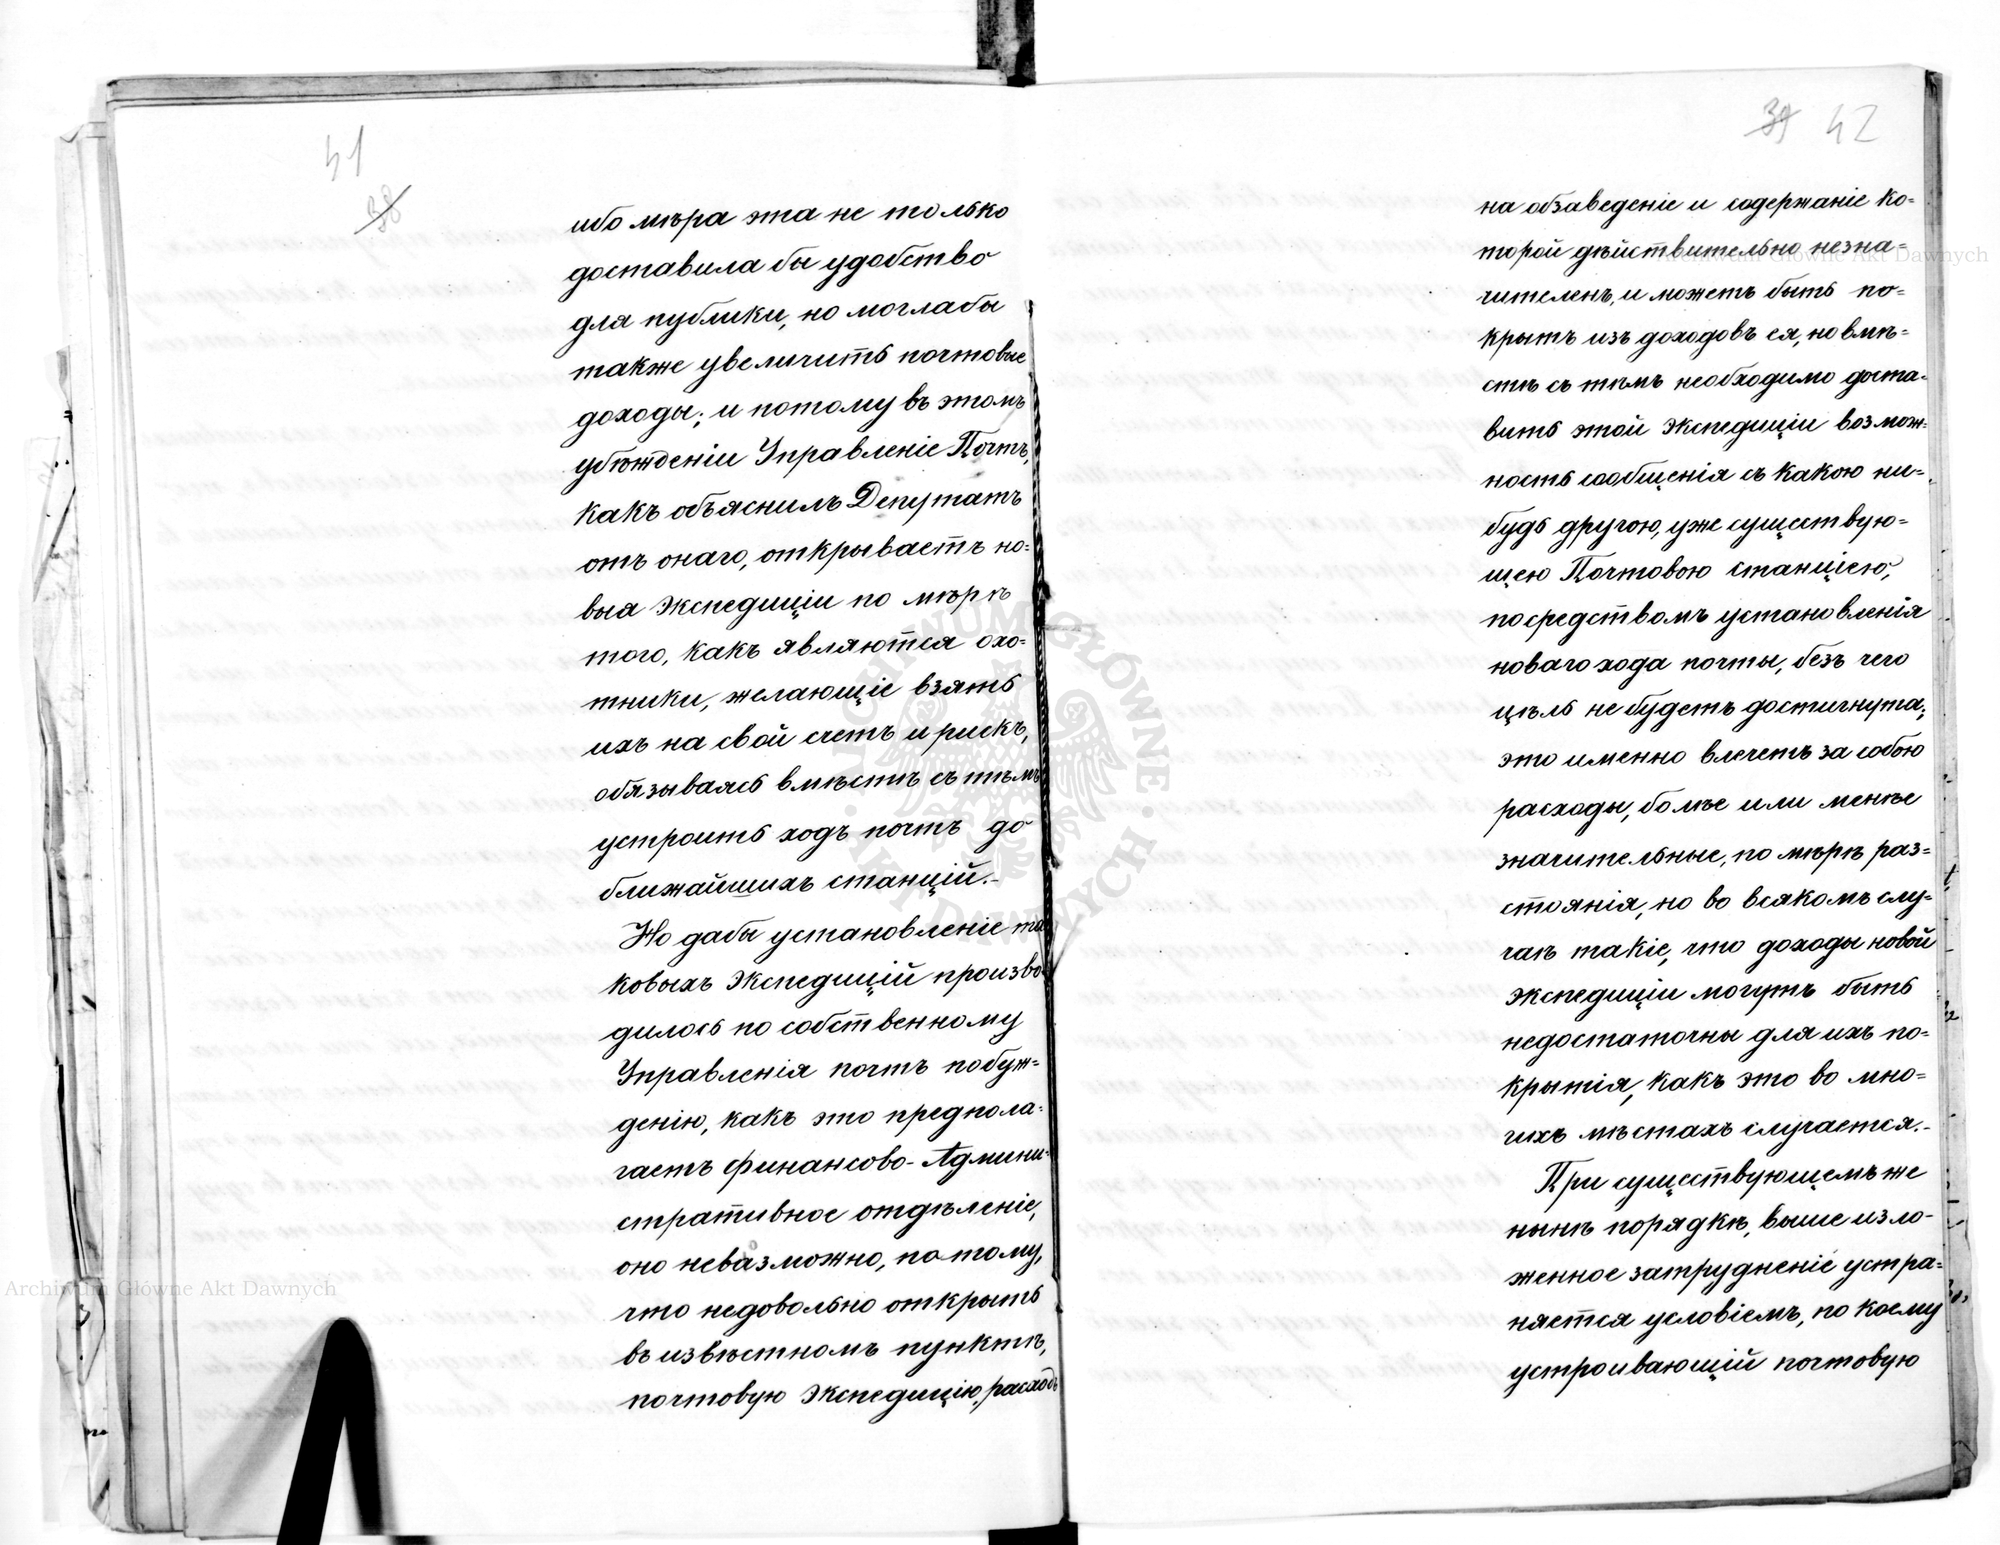 41
38
ибо мѣра эта не только
доставила бы удобство
для публики, но моглабы
также увеличить почтовые
доходы; и потому въ этомъ
убѣжденіи Управленіе Почтъ,
какъ объяснилъ Депутатъ
отъ онаго, открываетъ но=
выя Экспедиціи по мѣрѣ
того, какъ являются охо=
тники, желающіе взять
ихъ на свой счетъ и рискъ,
обязываясь вмѣстѣ съ тѣмъ
устроить ходъ почтъ до
ближайшихъ станцій.-
Но дабы установленіе та
ковыхъ Экспедицій произво
дилось по собственному
Управленія почтъ побуж=
денію, какъ это предпола=
гаетъ Финансово-Админи=
стративное отдѣленіе,
оно невозможно, потому,
что недовольно открыть
въ извѣстномъ пунктѣ,
почтовую Экспедицію, расходъ
39 42
на обзаведеніе и содержаніе ко=
торой дѣйствительно незна=
чителенъ, и можетъ быть по=
крытъ изъ доходовъ ея, но вмѣ=
стѣ съ тѣмъ необходимо доста=
вить этой Экспедиціи возмож=
ность сообщенія съ какою ни=
будь другою, уже существую=
щею Почтовою станціею,
посредствомъ установленія
новаго хода почты, безъ чего
цѣль не будетъ достигнута;
это именно влечетъ за собою
расходы, болѣе или менѣе
значительные, по мѣрѣ раз=
стоянія, но во всякомъ слу=
чаѣ такіе, что доходы новой
Экспедиціи могутъ быть
недостаточны для ихъ по=
крытія, какъ это во мно=
гихъ мѣстахъ случается.-
При существующемъ же
нынѣ порядкѣ, выше изло=
женное затрудненіе устра=
няется условіемъ, по коему
устроивающій почтовую
Archiwum Główne Akt Dawnych
Archiwum Główne Akt Dawnych
ARCHIWUM GŁÓWNE AKT DAWNYCH